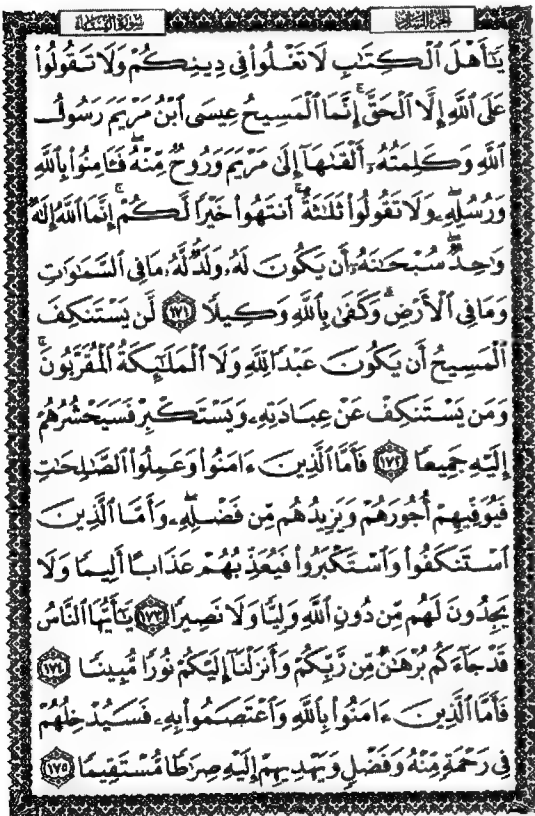 الجزء السادس سورة النساء
يَٰٓأَهْلَ ٱلْكِتَٰبِ لَا تَغْلُوا۟ فِى دِينِكُمْ وَلَا تَقُولُوا۟
عَلَى ٱللَّهِ إِلَّا ٱلْحَقَّ ۚ إِنَّمَا ٱلْمَسِيحُ عِيسَى ٱبْنُ مَرْيَمَ رَسُولُ
ٱللَّهِ وَكَلِمَتُهُۥٓ أَلْقَىٰهَآ إِلَىٰ مَرْيَمَ وَرُوحٌ مِّنْهُ ۖ فَـَٔامِنُوا۟ بِٱللَّهِ
وَرُسُلِهِۦ ۖ وَلَا تَقُولُوا۟ ثَلَٰثَةٌ ۚ ٱنتَهُوا۟ خَيْرًا لَّكُمْ ۚ إِنَّمَا ٱللَّهُ إِلَٰهٌ
وَٰحِدٌ ۖ سُبْحَٰنَهُۥٓ أَن يَكُونَ لَهُۥ وَلَدٌ ۘ لَّهُۥ مَا فِى ٱلسَّمَٰوَٰتِ
وَمَا فِى ٱلْأَرْضِ ۗ وَكَفَىٰ بِٱللَّهِ وَكِيلًا ١٧١ لَّن يَسْتَنكِفَ
ٱلْمَسِيحُ أَن يَكُونَ عَبْدًا لِّلَّهِ وَلَا ٱلْمَلَٰٓئِكَةُ ٱلْمُقَرَّبُونَ ۚ
وَمَن يَسْتَنكِفْ عَنْ عِبَادَتِهِۦ وَيَسْتَكْبِرْ فَسَيَحْشُرُهُمْ
إِلَيْهِ جَمِيعًا ١٧٢ فَأَمَّا ٱلَّذِينَ ءَامَنُوا۟ وَعَمِلُوا۟ ٱلصَّٰلِحَٰتِ
فَيُوَفِّيهِمْ أُجُورَهُمْ وَيَزِيدُهُم مِّن فَضْلِهِۦ ۖ وَأَمَّا ٱلَّذِينَ
ٱسْتَنكَفُوا۟ وَٱسْتَكْبَرُوا۟ فَيُعَذِّبُهُمْ عَذَابًا أَلِيمًا وَلَا
يَجِدُونَ لَهُم مِّن دُونِ ٱللَّهِ وَلِيًّا وَلَا نَصِيرًا ١٧٣ يَٰٓأَيُّهَا ٱلنَّاسُ
قَدْ جَآءَكُم بُرْهَٰنٌ مِّن رَّبِّكُمْ وَأَنزَلْنَآ إِلَيْكُمْ نُورًا مُّبِينًا ١٧٤
فَأَمَّا ٱلَّذِينَ ءَامَنُوا۟ بِٱللَّهِ وَٱعْتَصَمُوا۟ بِهِۦ فَسَيُدْخِلُهُمْ
فِى رَحْمَةٍ مِّنْهُ وَفَضْلٍ وَيَهْدِيهِمْ إِلَيْهِ صِرَٰطًا مُّسْتَقِيمًا ١٧٥